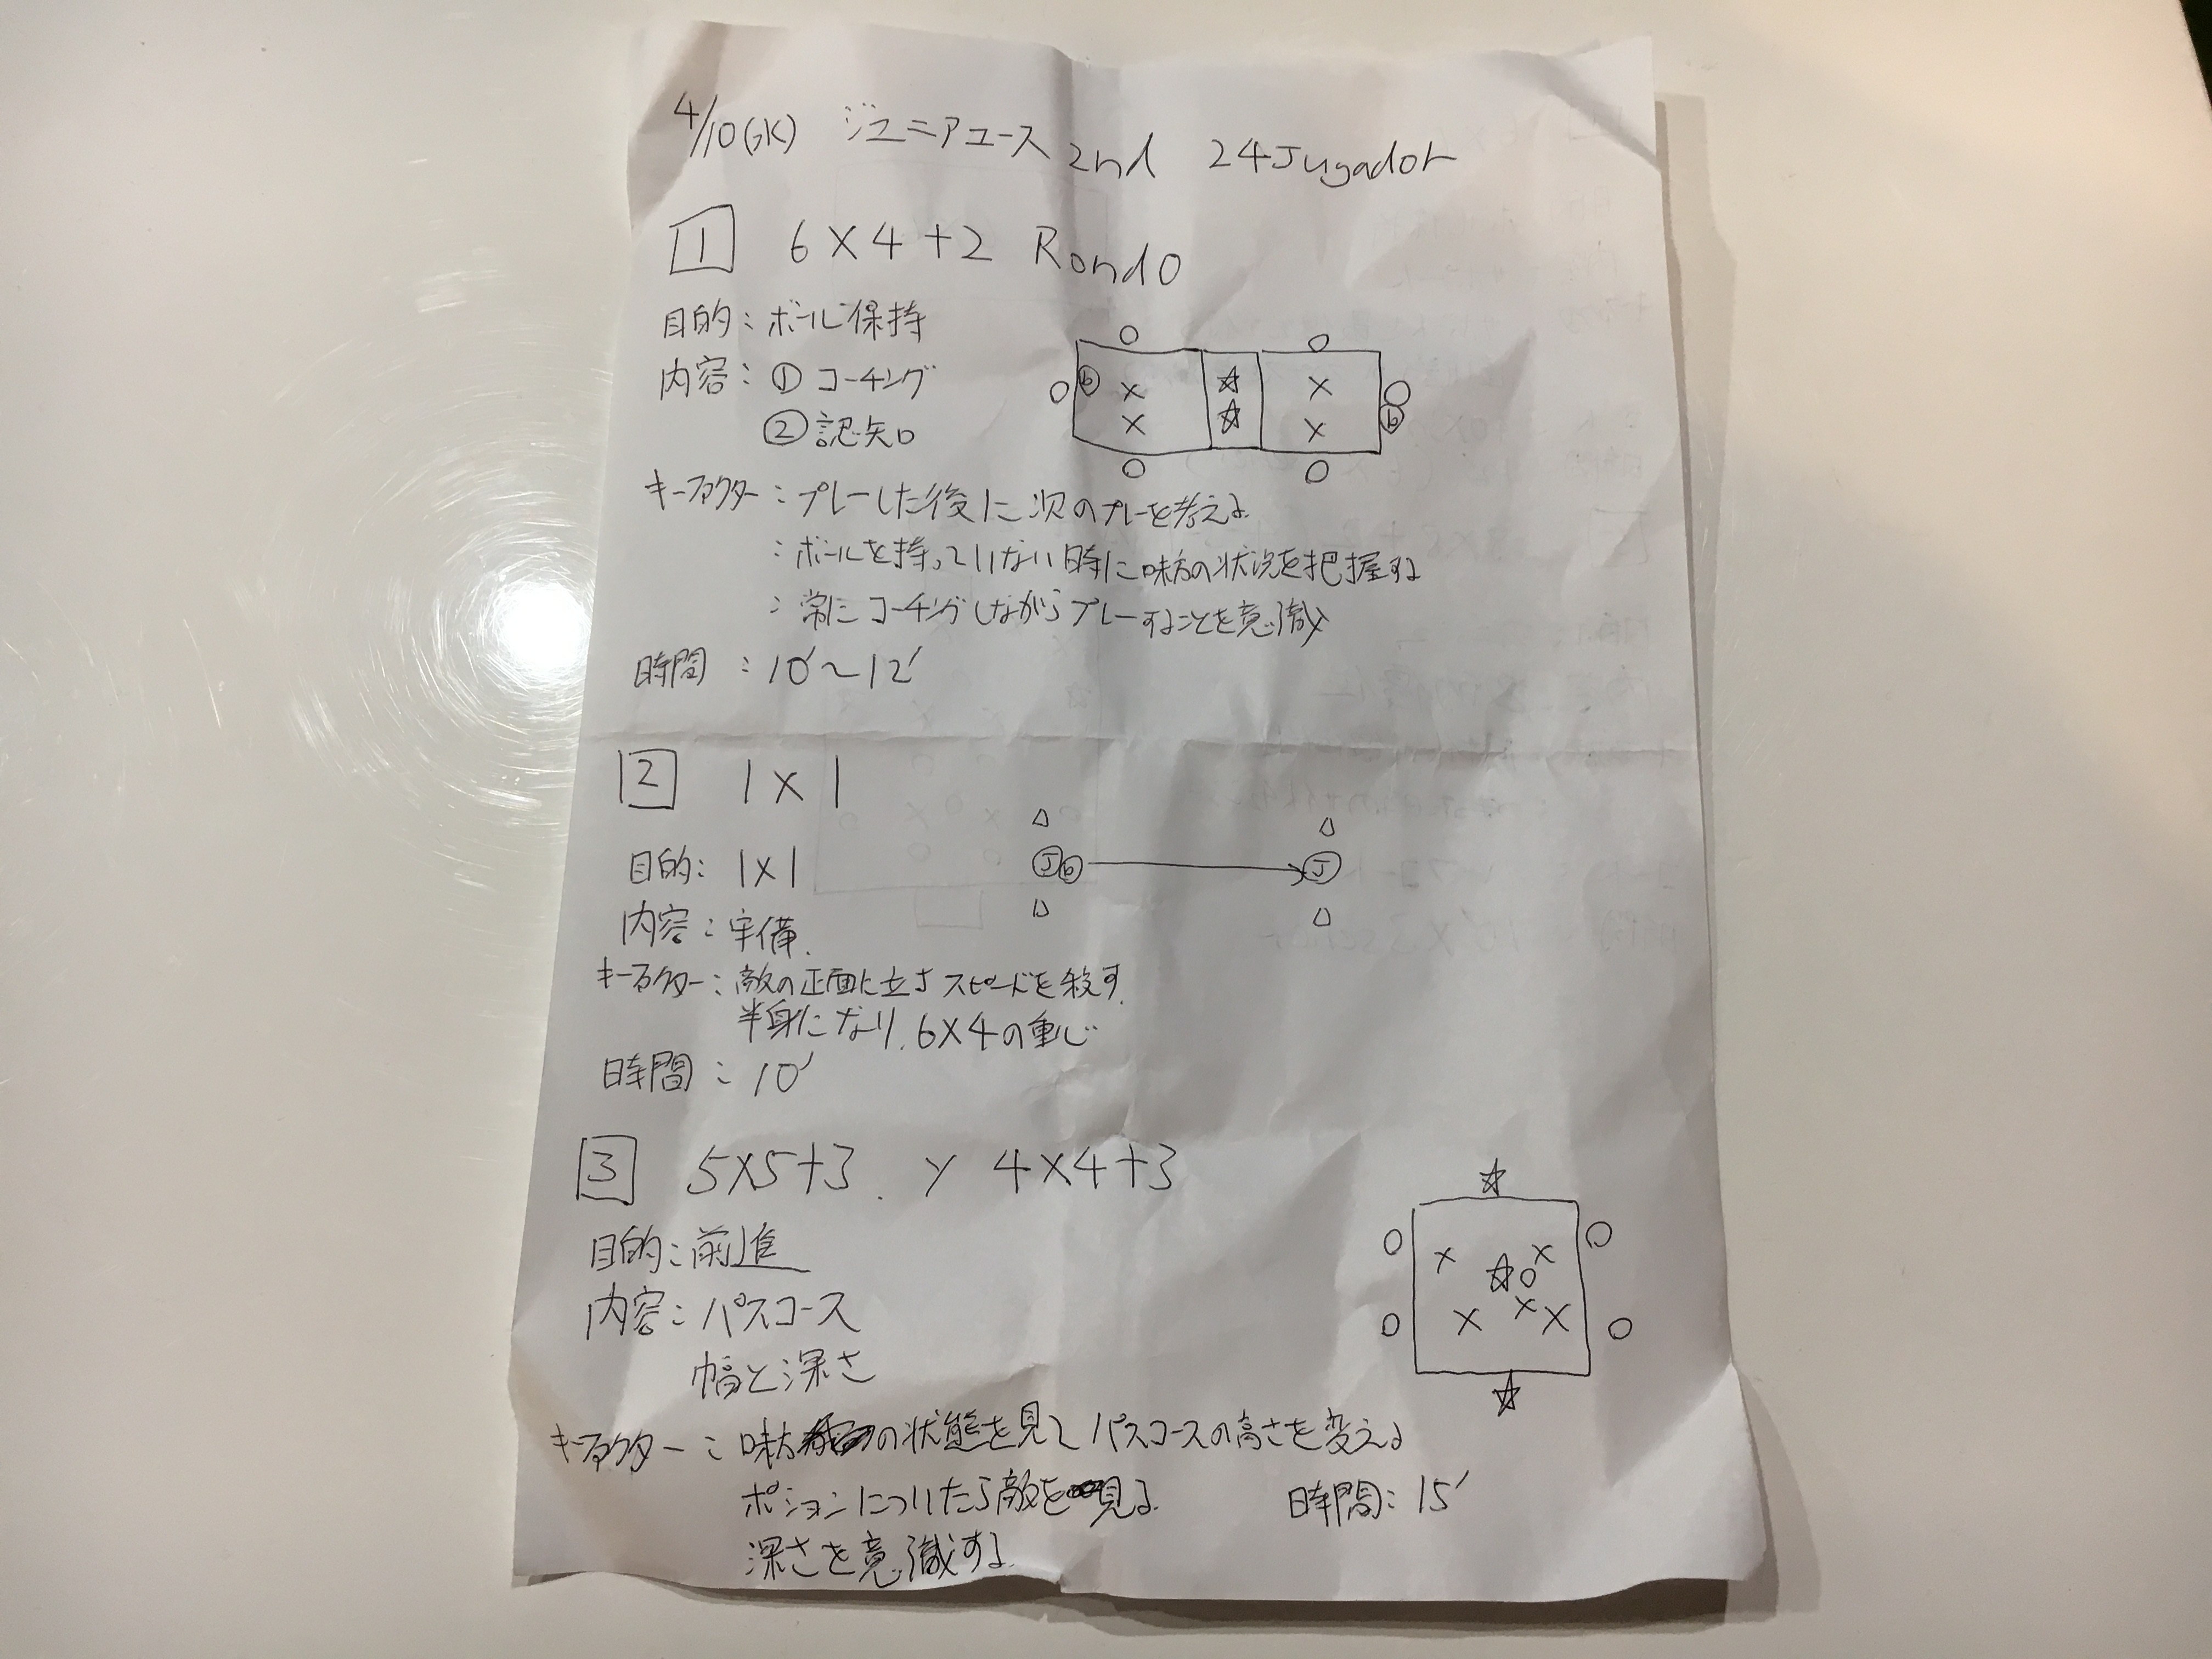 4/10(GK) ジュニアユース 2nd 24Jugador
1 6×4+2 Rondo
目的：ボール保持
内容：① コーチング
② 認知
キーファクター：プレーした後に次のプレーを考える
：ボールを持っていない時に味方の状況を把握する
：常にコーチングしながらプレーすることを意識
時間：10'～12'
b
b
2 1×1
目的：1×1
内容：守備
キーファクター：敵の正面に立ち スピードを殺す
半身になり、6×4の重心
時間：10'
J b
J
3 5×5+3 y 4×4+3
目的：前進
内容：パスコース
幅と深さ
キーファクター：味方の状態を見て パスコースの高さを変える
ポションについたら敵を見る
時間：15'
深さを意識する